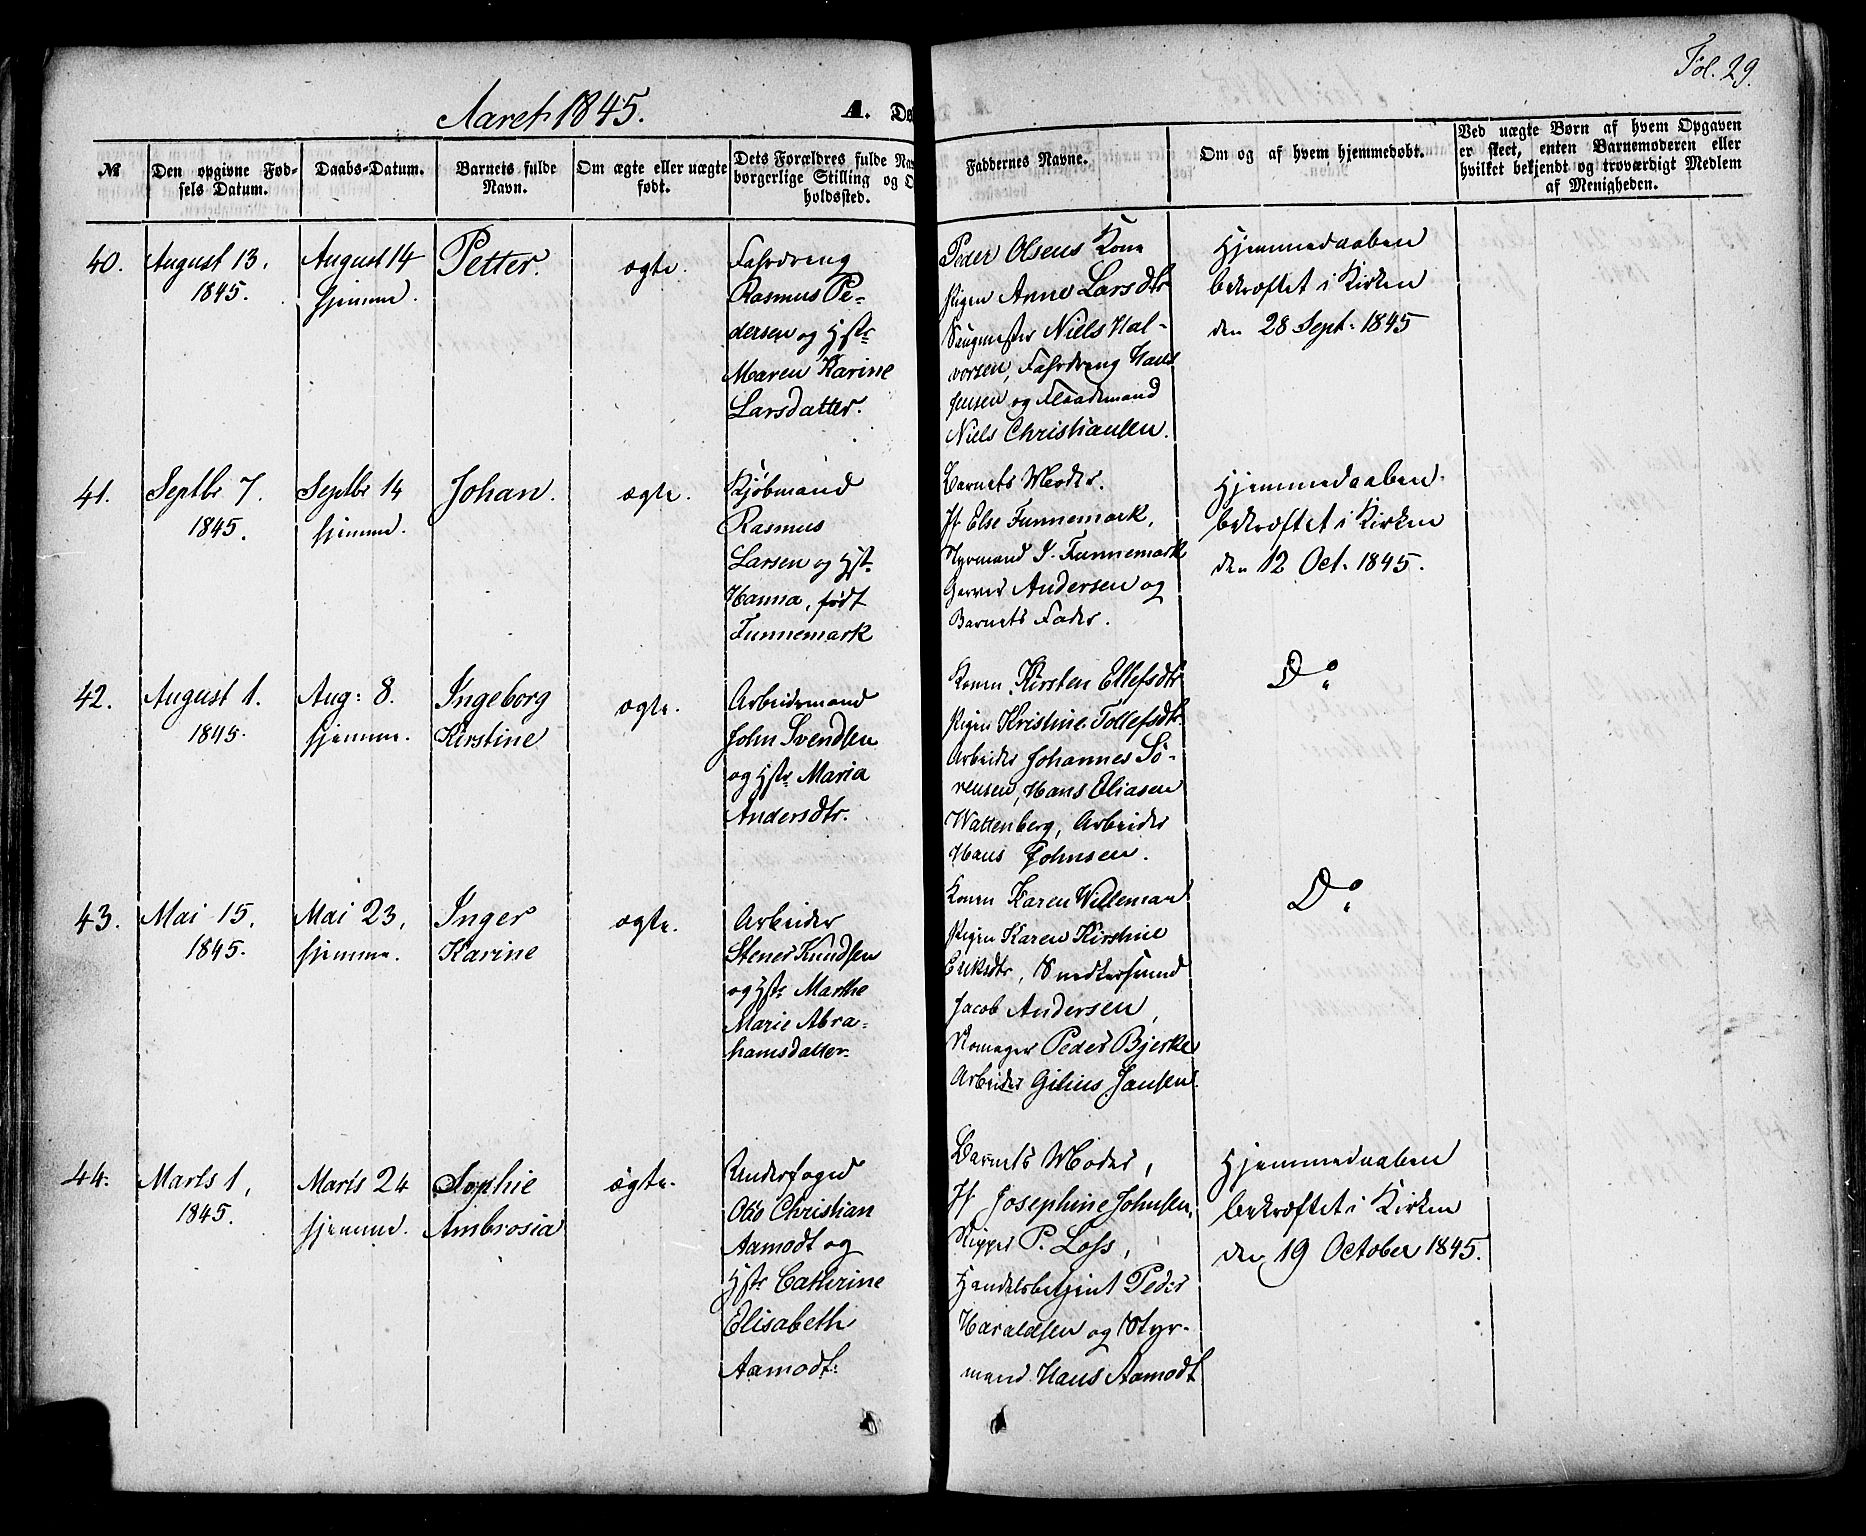 Fol. 29.
Aaret 1845.
A. De
№
Den opgivne Fød-
sels Datum.
Daabs-Datum.
Barnets fulde
Navn.
Om ægte eller uægte
født.
Dets Forældres fulde Nav
borgerlige Stilling og O
holdssted.
Faddernes Navne.
Om og af hvem hjemmedøbt.
Ved uægte Børn af hvem Opgaven
er skeet, enten Barnemoderen eller
hvilket bekjendt og troværdigt Medlem
af Menigheden.
40.
August 13.
1845.
August 14
hjemme.
Petter.
ægte.
Fahrdreng
Rasmus Pe-
dersen og Hstr
Maren Karine
Larsdatter.
Peder Olsens Kone
Pigen Anne Larsdtr
Saugmester Niels Hal-
vorsen, Fahrdreng Hans
Jensen og Flaademand
Niels Christiansen.
Hjemmedaaben
bekræftet i Kirken
den 28 Sept. 1845
41.
Septbr 7.
1845.
Septbr 14
hjemme.
Johan.
ægte.
Kjøbmand
Rasmus
Larsen og Hst.
Hanna, født
Funnemark
Barnets Moder.
Jf. Else Funnemark,
Styrmand J. Funnemark
Garver Andersen og
Barnets Fader.
Hjemmedaaben
bekræftet i Kirken
den 12 Oct. 1845.
42.
August 1.
1845.
Aug: 8.
hjemme.
Ingeborg
Kirstine
ægte.
Arbeidsmand
John Svendsen
og Hstr Maria
Andersdtr.
Konen Kirsten Ellefsdtr
Pigen Kristine Tollefsdtr.
Arbeider Johannes Sö-
rensen, Hans Eliasen
Wattenberg, Arbeider
Hans Johnsen.
Do
43.
Mai 15.
1845.
Mai 23,
hjemme.
Inger
Karine
ægte.
Arbeider
Stener Knudsen
og Hstr Marthe
Marie Abra-
hamsdatter.
Konen Karen Willemar
Pigen Karen Kirstine
Eriksdtr, Snedkersvend
Jacob Andersen,
Peder Bjerke
Arbeider Gilius Jansen.
Do
44.
Marts 1,
1845.
Marts 24
hjemme.
Sophie
Ambrosia
ægte.
Underfoged
Otto Christian
Aamodt og
Hstr Catherine
Elisabeth
Aamodt.
Barnets Moder,
Jf. Josephine Johnsen,
Skipper P. Loss,
Handelsbetjent Peder
Haraldsen og Styr-
mand Hans Aamodt
Hjemmedaaben
bekræftet i Kirken
den 19 October 1845.